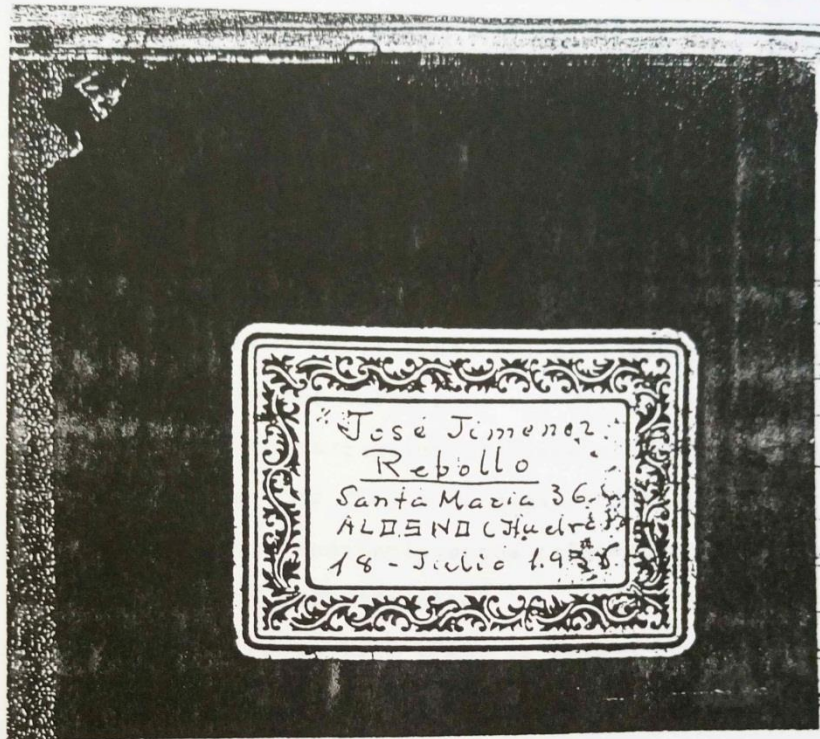 José Jimenez
Rebollo
Santa Maria 36
ALOSNO (Huelva)
18 - Julio